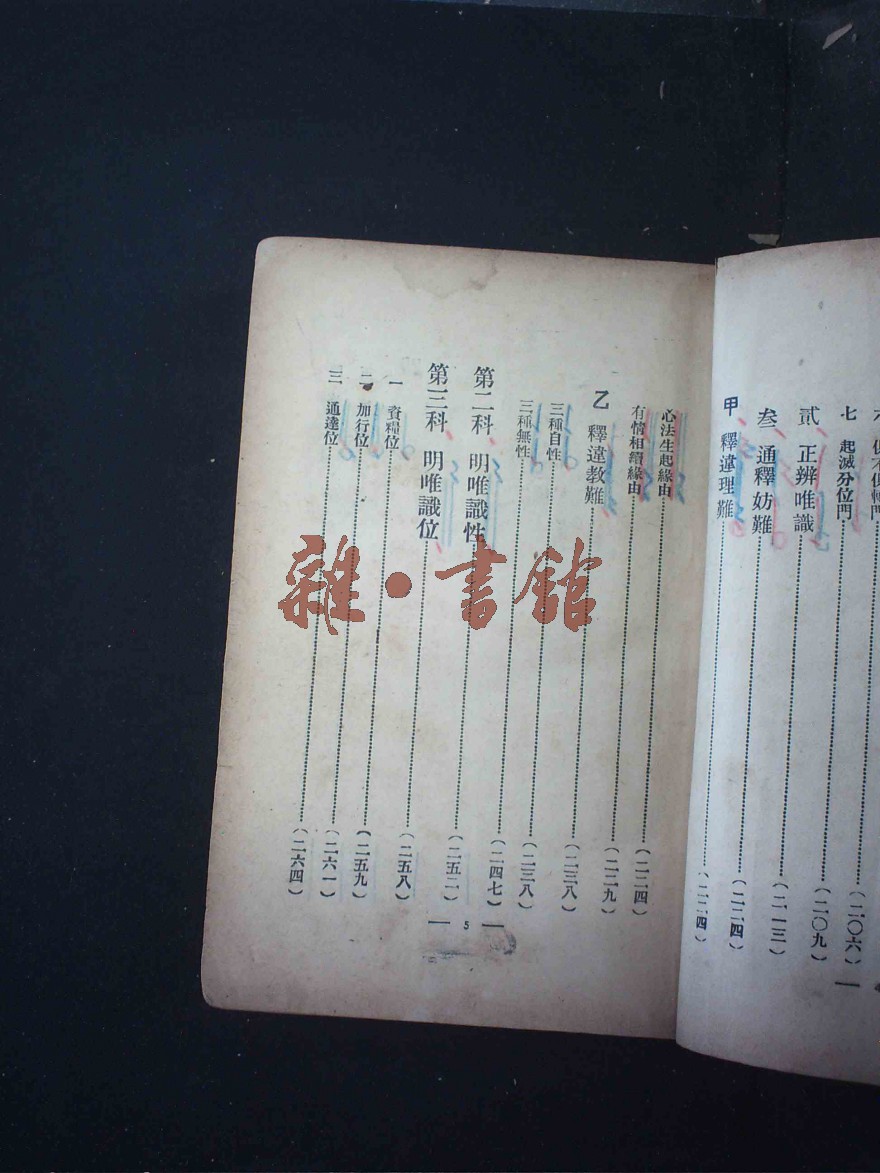 六 俱不俱轉門 (二〇六)
七 起滅分位門 (二〇九)
貳 正辨唯識 (二一三)
叁 通釋妨難 (二二四)
甲 釋違理難 (二二四)
心法生起緣由 (二二四)
有情相續緣由 (二二九)
乙 釋違教難 (二三八)
三種自性 (二三八)
三種無性 (二四七)
第二科 明唯識性 (二五二)
第三科 明唯識位 (二五八)
一 資糧位 (二五九)
二 加行位 (二六一)
三 通達位 (二六四)
5
雜·書館